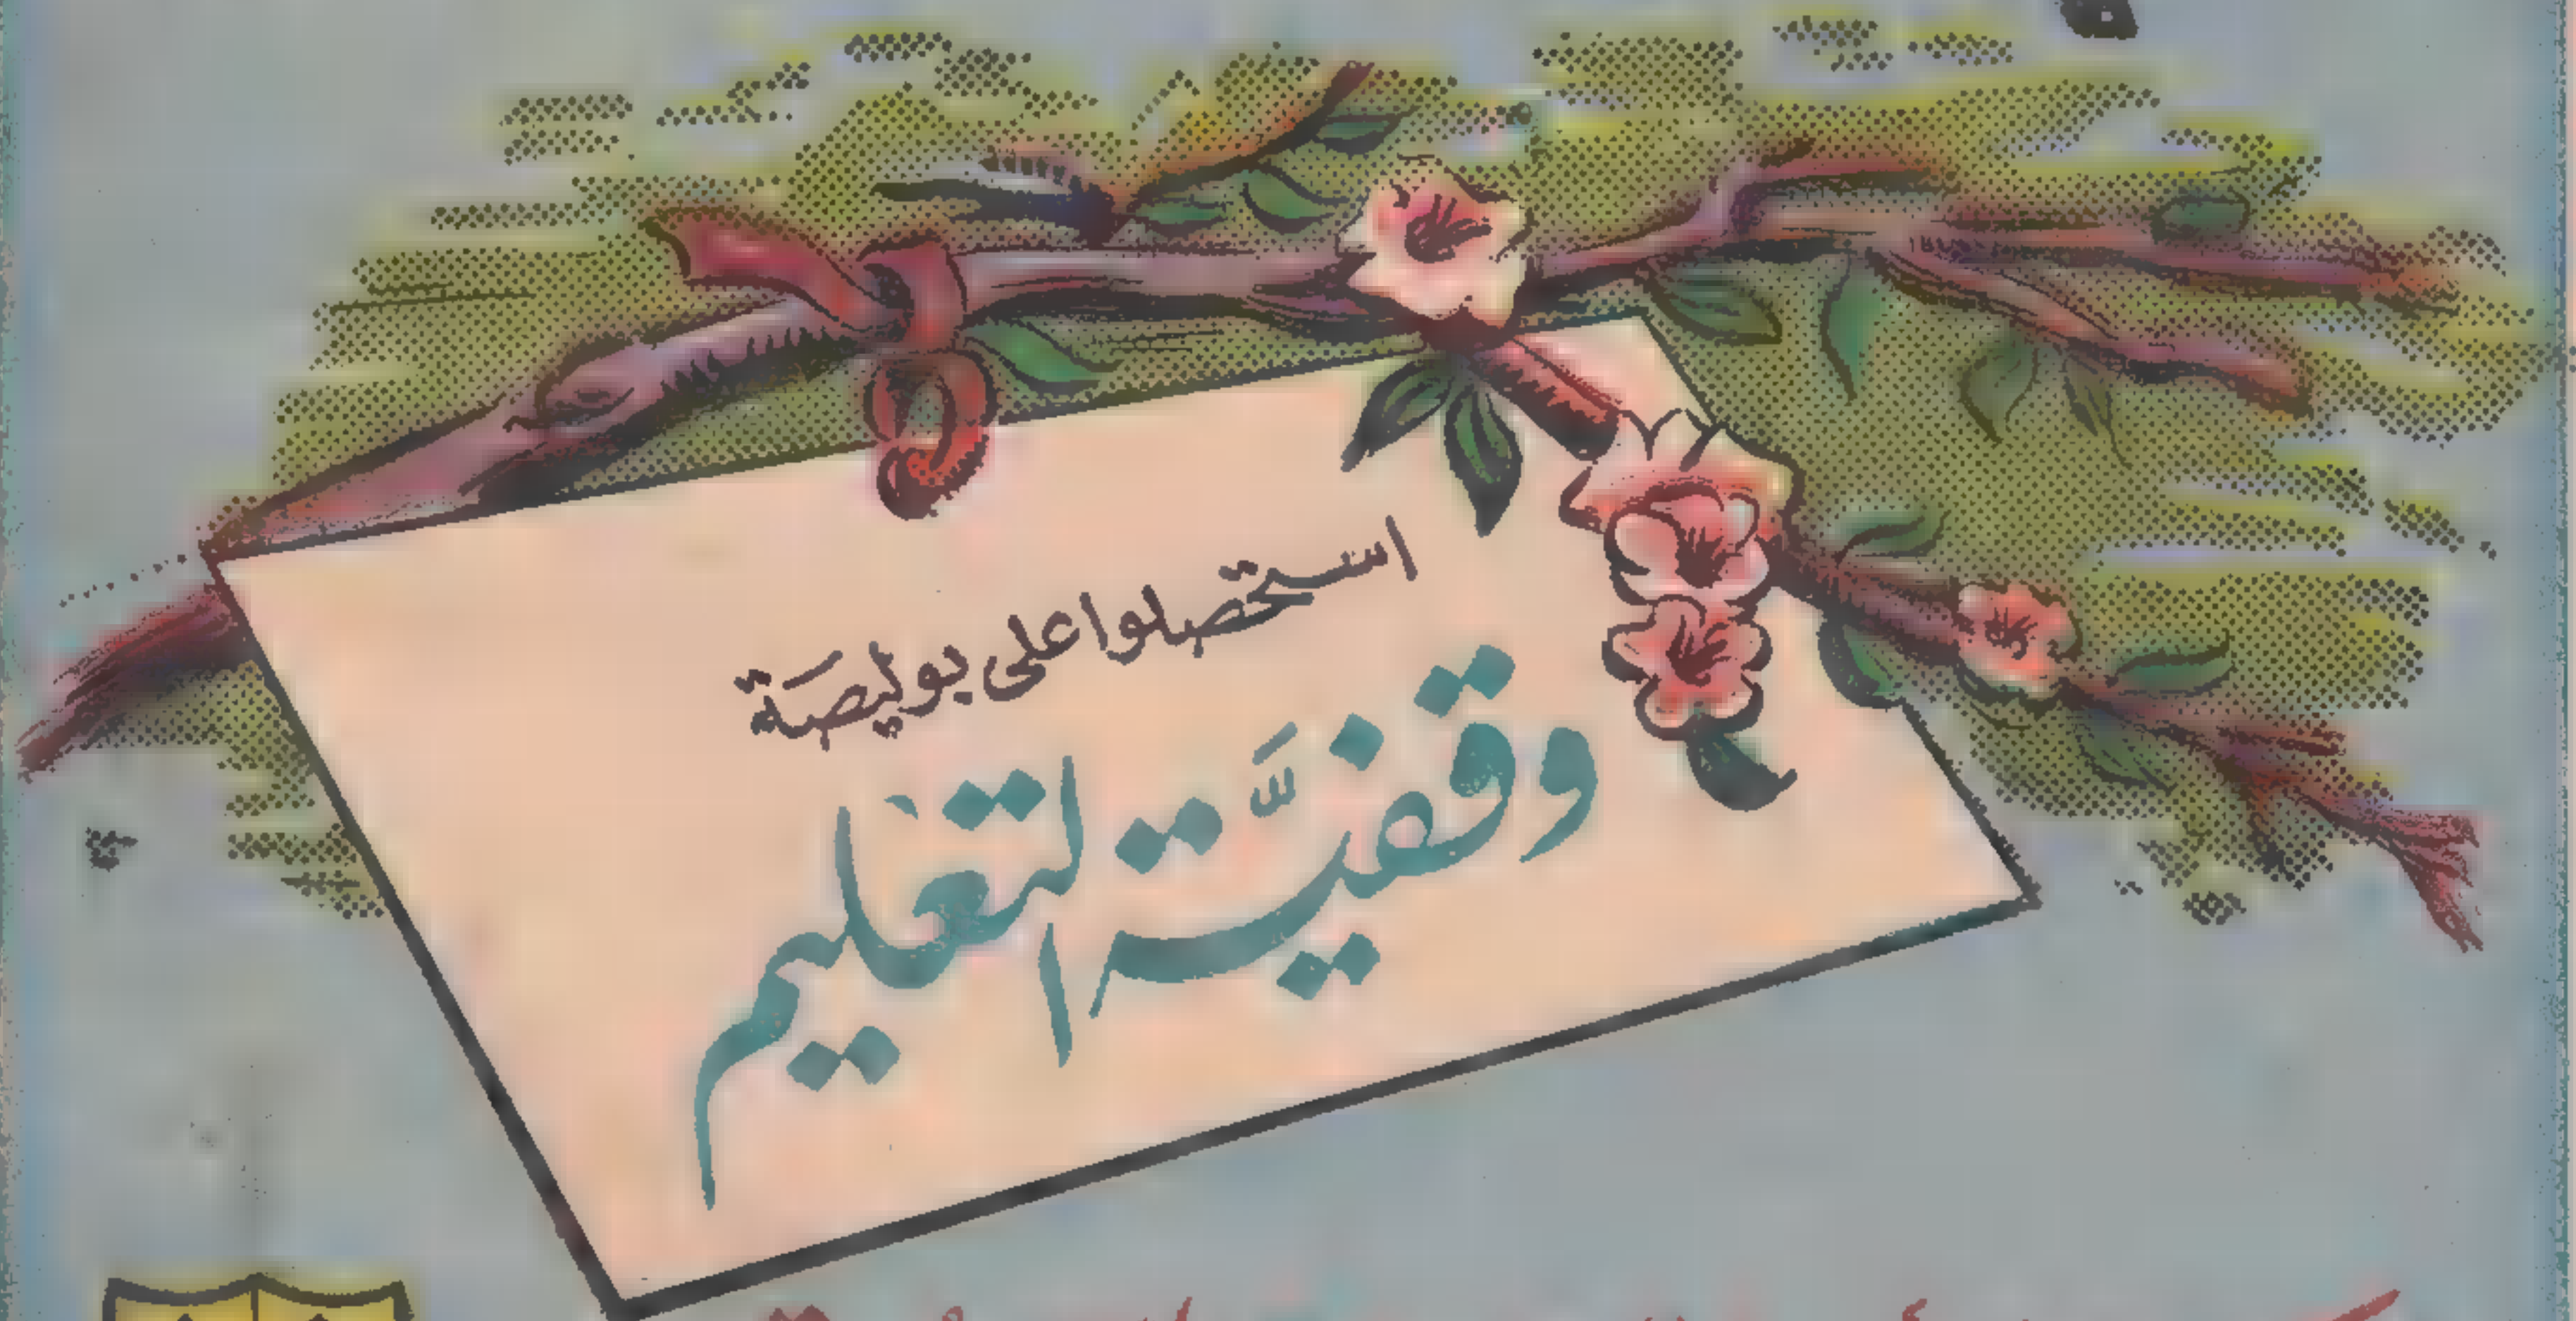 استحصلوا على بوليصَة
وقفيَّة التعليم